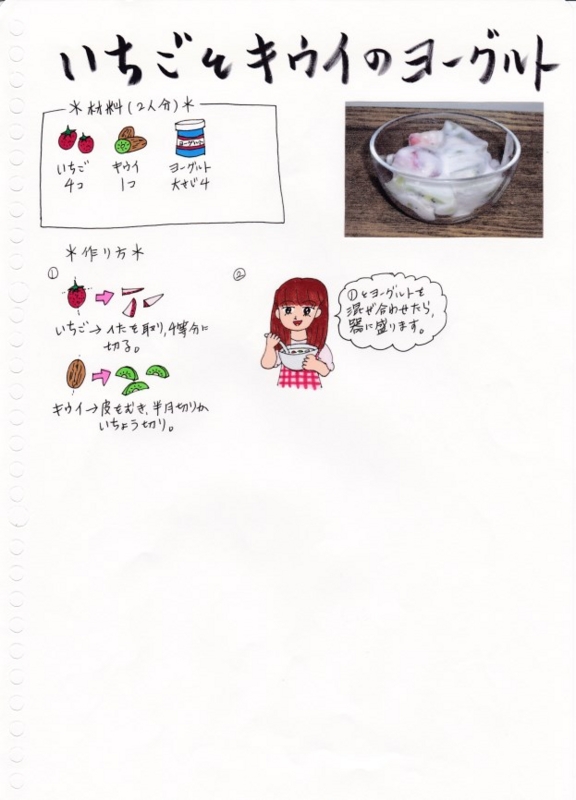 いちごとキウイのヨーグルト
＊材料(2人分)＊
いちご
4コ
キウイ
1コ
ヨーグルト
ヨーグルト
大さじ4
＊作り方＊
①
いちご→ヘたを取り,4等分に
切る。
キウイ→皮をむき,半月切りか
いちょう切り。
②
①とヨーグルトを
混ぜ合わせたら,
器に盛ります。